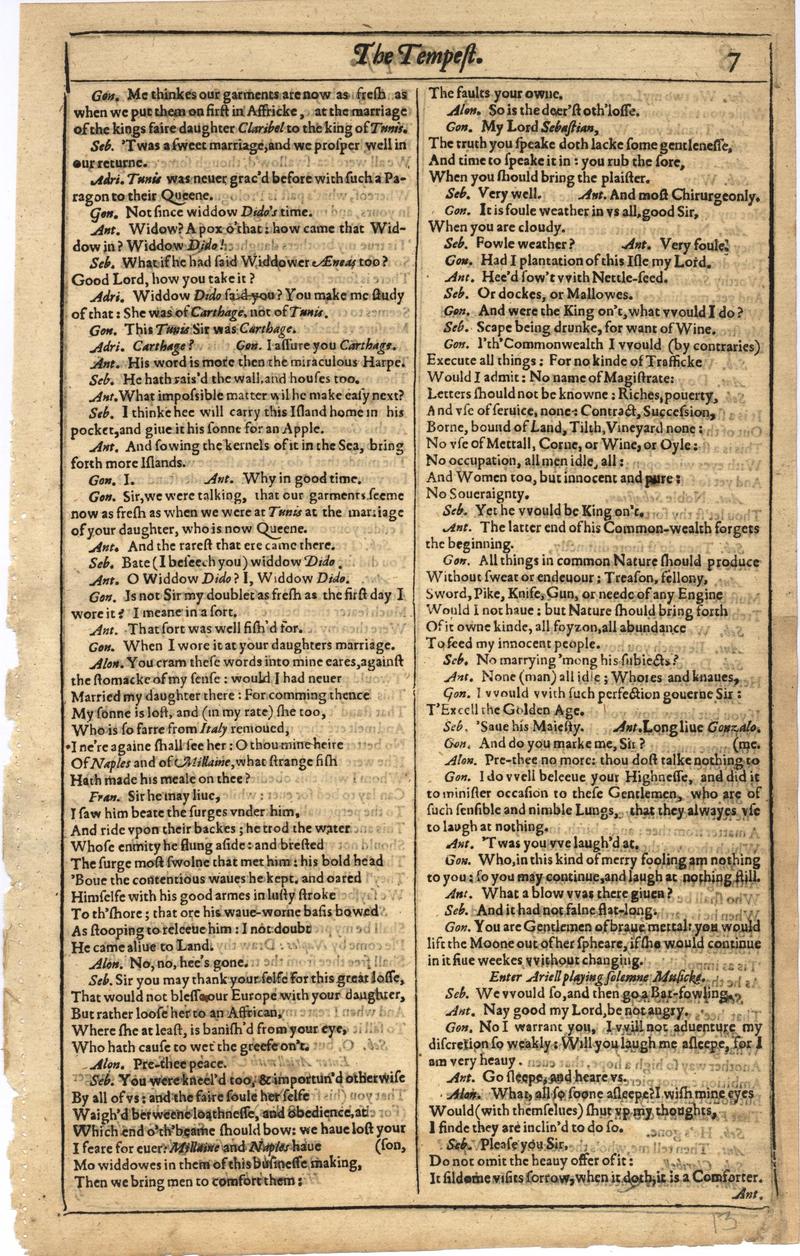 The Tempeſt.
7
Gon. Me thinkes our garments are now as freſh as
when we put them on firſt in Affricke, at the marriage
of the kings faire daughter Claribel to the king of Tunis.
Seb. 'Twas a ſweet marriage, and we proſper well in
our returne.
Adri. Tunis was neuer grac'd before with ſuch a Pa-
ragon to their Queene.
Gon. Not ſince widdow Dido's time.
Ant. Widow? A pox o'that: how came that Wid-
dow in? Widdow Dido!
Seb. What if he had ſaid Widdower Æneas too?
Good Lord, how you take it?
Adri. Widdow Dido ſaid you? You make me ſtudy
of that: She was of Carthage, not of Tunis.
Gon. This Tunis Sir was Carthage.
Adri. Carthage? Gon. I aſſure you Carthage.
Ant. His word is more then the miraculous Harpe.
Seb. He hath rais'd the wall, and houſes too.
Ant. What impoſsible matter wil he make eaſy next?
Seb. I thinke hee will carry this Iſland home in his
pocket, and giue it his ſonne for an Apple.
Ant. And ſowing the kernels of it in the Sea, bring
forth more Iſlands.
Gon. I. Ant. Why in good time.
Gon. Sir, we were talking, that our garments ſeeme
now as freſh as when we were at Tunis at the marriage
of your daughter, who is now Queene.
Ant. And the rareſt that ere came there.
Seb. Bate (I beſeech you) widdow Dido.
Ant. O Widdow Dido? I, Widdow Dido.
Gon. Is not Sir my doublet as freſh as the firſt day I
wore it? I meane in a ſort.
Ant. That ſort was well fiſh'd for.
Gon. When I wore it at your daughters marriage.
Alon. You cram theſe words into mine eares, againſt
the ſtomacke of my ſenſe: would I had neuer
Married my daughter there: For comming thence
My ſonne is loſt, and (in my rate) ſhe too,
Who is ſo farre from Italy remoued,
I ne're againe ſhall ſee her: O thou mine heire
Of Naples and of Millaine, what ſtrange fiſh
Hath made his meale on thee?
Fran. Sir he may liue,
I ſaw him beate the ſurges vnder him,
And ride vpon their backes; he trod the water
Whoſe enmity he flung aſide: and breſted
The ſurge moſt ſwolne that met him: his bold head
'Boue the contentious waues he kept, and oared
Himſelfe with his good armes in luſty ſtroke
To th'ſhore; that ore his waue-worne baſis bowed
As ſtooping to releeue him: I not doubt
He came aliue to Land.
Alon. No, no, hee's gone.
Seb. Sir you may thank your ſelfe for this great loſſe,
That would not bleſſe our Europe with your daughter,
But rather looſe her to an Affrican,
Where ſhe at leaſt, is baniſh'd from your eye,
Who hath cauſe to wet the greefe on't.
Alon. Pre-thee peace.
Seb. You were kneel'd too, & importun'd otherwiſe
By all of vs: and the faire ſoule her ſelfe
Waigh'd betweene loathneſſe, and obedience, at
Which end o'th'beame ſhould bow: we haue loſt your
I feare for euer: Millaine and Naples haue (ſon,
Mo widdowes in them of this buſineſſe making,
Then we bring men to comfort them:
The faults your owne.
Alon. So is the deer'ſt oth'loſſe.
Gon. My Lord Sebaſtian,
The truth you ſpeake doth lacke ſome gentleneſſe,
And time to ſpeake it in: you rub the ſore,
When you ſhould bring the plaiſter.
Seb. Very well. Ant. And moſt Chirurgeonly.
Gon. It is foule weather in vs all, good Sir,
When you are cloudy.
Seb. Fowle weather? Ant. Very foule.
Gon. Had I plantation of this Iſle my Lord.
Ant. Hee'd ſow't vvith Nettle-ſeed.
Seb. Or dockes, or Mallowes.
Gon. And were the King on't, what vvould I do?
Seb. Scape being drunke, for want of Wine.
Gon. I'th'Commonwealth I vvould (by contraries)
Execute all things: For no kinde of Trafficke
Would I admit: No name of Magiſtrate:
Letters ſhould not be knowne: Riches, pouerty,
And vſe of ſeruice, none: Contract, Succeſsion,
Borne, bound of Land, Tilth, Vineyard none:
No vſe of Mettall, Corne, or Wine, or Oyle:
No occupation, all men idle, all:
And Women too, but innocent and pure:
No Soueraignty.
Seb. Yet he vvould be King on't.
Ant. The latter end of his Common-wealth forgets
the beginning.
Gon. All things in common Nature ſhould produce
Without ſweat or endeuour: Treaſon, fellony,
Sword, Pike, Knife, Gun, or neede of any Engine
Would I not haue: but Nature ſhould bring forth
Of it owne kinde, all foyzon, all abundance
To feed my innocent people.
Seb. No marrying 'mong his ſubiects?
Ant. None (man) all idle; Whores and knaues,
Gon. I vvould vvith ſuch perfection gouerne Sir:
T'Excell the Golden Age.
Seb. 'Saue his Maieſty. Ant. Long liue Gonzalo.
Gon. And do you marke me, Sir? (me.
Alon. Pre-thee no more: thou doſt talke nothing to
Gon. I do vvell beleeue your Highneſſe, and did it
to miniſter occaſion to theſe Gentlemen, who are of
ſuch ſenſible and nimble Lungs, that they alwayes vſe
to laugh at nothing.
Ant. 'Twas you vve laugh'd at.
Gon. Who, in this kind of merry fooling am nothing
to you: ſo you may continue, and laugh at nothing ſtill.
Ant. What a blow vvas there giuen?
Seb. And it had not falne flat-long.
Gon. You are Gentlemen of braue mettal: you would
lift the Moone out of her ſpheare, if ſhe would continue
in it fiue weekes vvithout changing.
Enter Ariell playing ſolemne Muſicke.
Seb. We vvould ſo, and then go a Bat-fowling.
Ant. Nay good my Lord, be not angry.
Gon. No I warrant you, I vvill not aduenture my
diſcretion ſo weakly: Will you laugh me aſleepe, for I
am very heauy.
Ant. Go ſleepe, and heare vs.
Alon. What, all ſo ſoone aſleepe? I wiſh mine eyes
Would (with themſelues) ſhut vp my thoughts,
I finde they are inclin'd to do ſo.
Seb. Pleaſe you Sir,
Do not omit the heauy offer of it:
It ſildome viſits ſorrow, when it doth, it is a Comforter.
Ant.
13